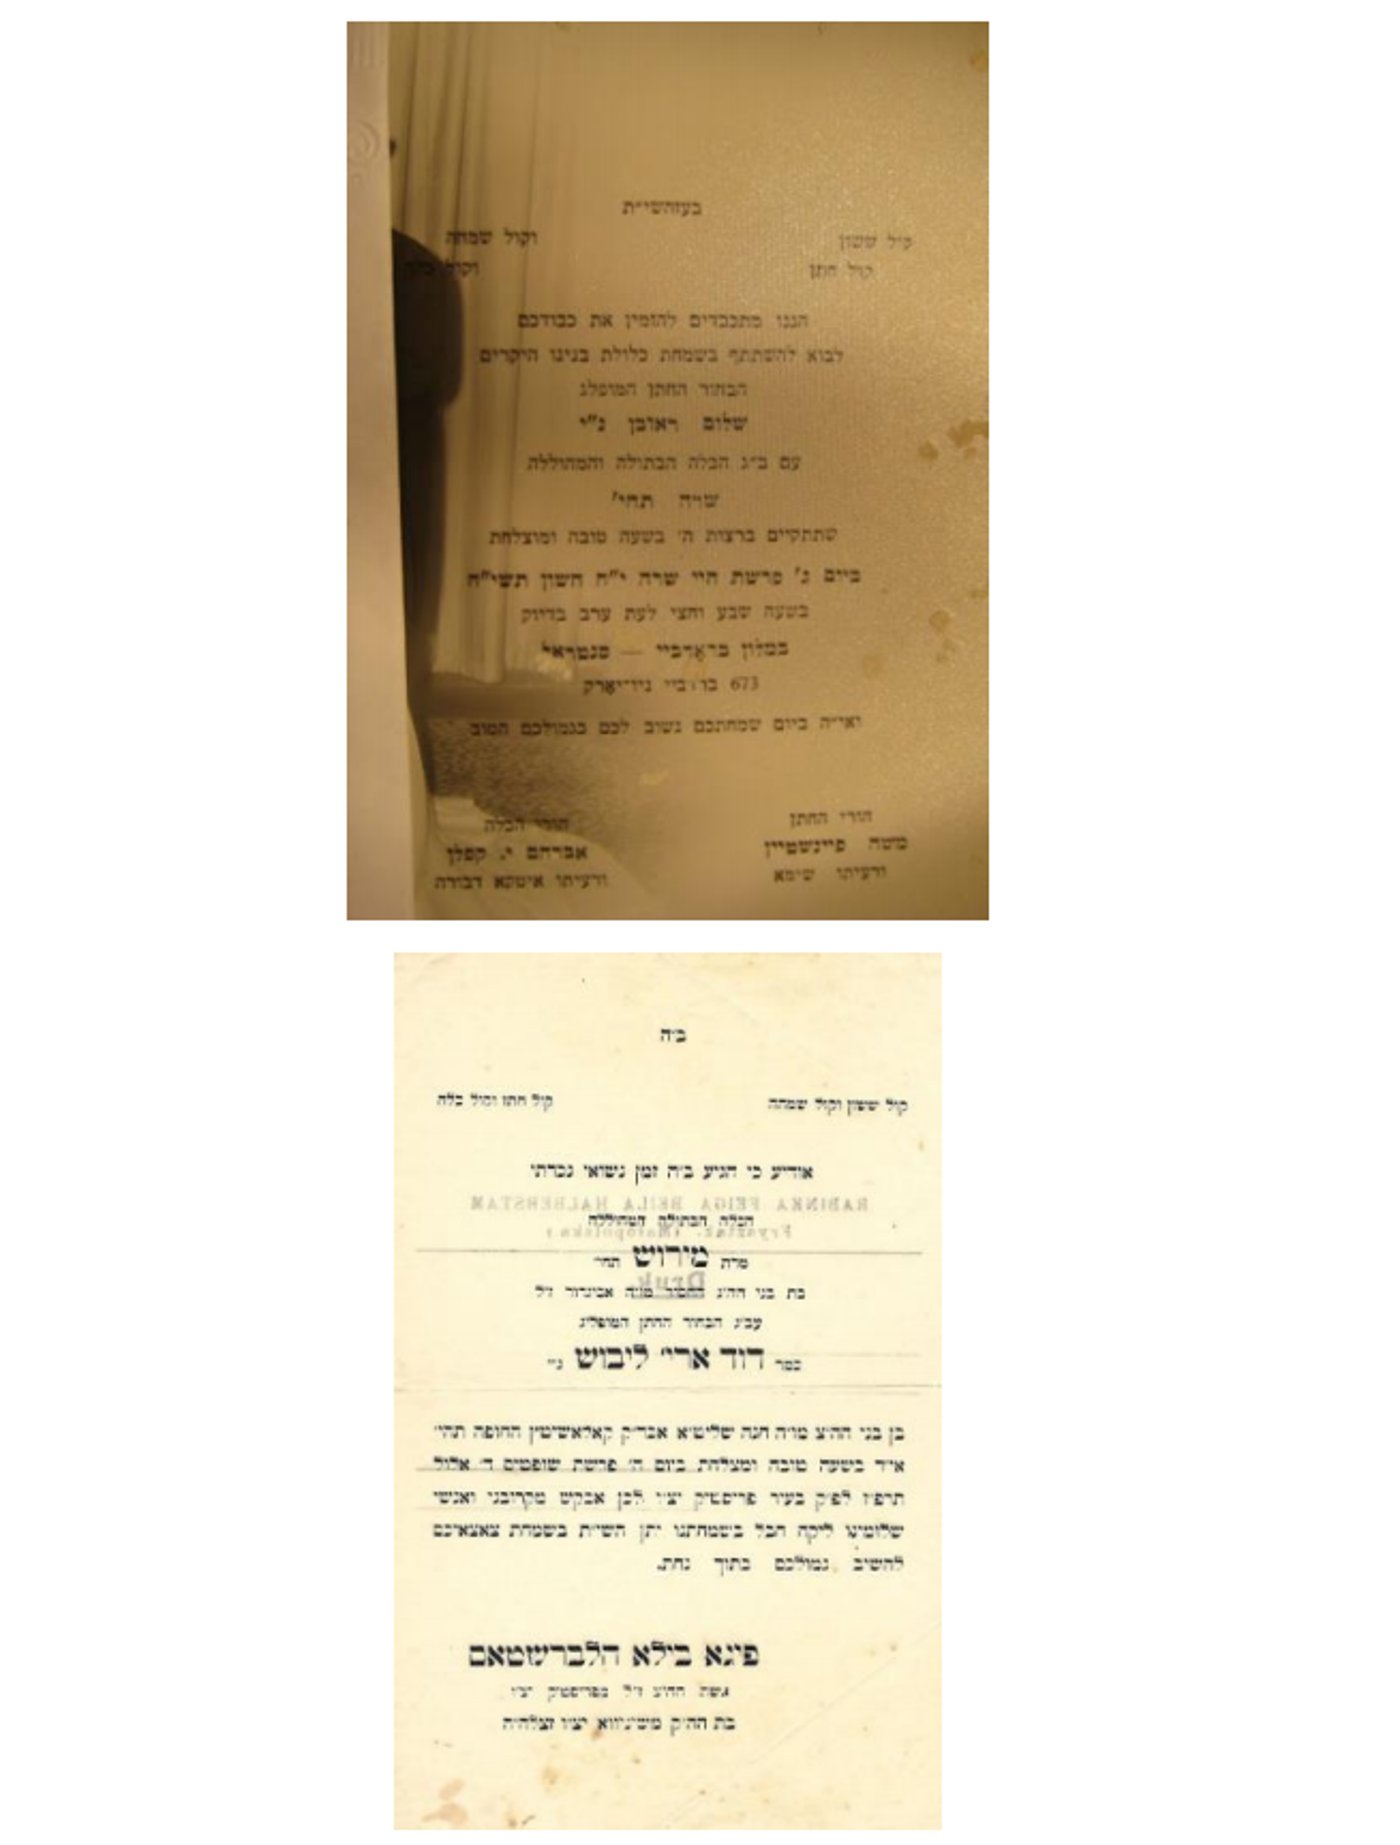 בעזהשי״ת
קול ששון וקול שמחה
קול חתן וקול כלה
הננו מתכבדים להזמין את כבודכם
לבוא להשתתף בשמחת כלולת בנינו היקרים
הבחור החתן המופלג
שלום ראובן נ"י
עם ב״ג הכלה הבתולה והמהוללה
שרה תחי'
שתתקיים ברצות ה' בשעה טובה ומוצלחת
ביום ג' פרשת חיי שרה י"ח חשון תשי"ח
בשעה שבע וחצי לעת ערב בדיוק
במלון בראָדביי — סנטראל
673 ניו־יאָרק
ואי״ה ביום שמחתכם נשוב לכם כגמולכם הטוב
הורי החתן
משה פיינשטיין
ורעיתו שימא
הורי הכלה
אברהם י. קפלן
ורעיתו איטקא דבורה
ב״ה
קול ששון וקול שמחה קול חתן וקול כלה
אודיע כי הגיע ב״ה זמן נשואי נכדתי
RABINKA FEIGA BEILA HALBERSTAM
הכלה הבתולה המהוללה
Frysztak. (Małopolska)
מרת מירוש תחי׳
Druk.
בת בני הה״ג החסיד מו״ה אביגדור ז״ל
עב״ג הבחור החתן המופלג
כמר דוד ארי׳ ליבוש נ״י
בן בני הה״צ מו״ה חנה שליט״א אבד״ק קאלאשיטץ החופה תהי׳
אי״ה בשעה טובה ומצלחת ביום ה׳ פרשת שופטים ד׳ אלול
תרפ״ז לפ״ק בעיר פריסטיק יצ״ו לכן אבקש מקרובני ואנשי
שלומינו ליקח חבל בשמחתנו יתן השי״ת בשמחת צאצאיכם
להשיב גמולכם בתוך נחת.
פיגא בילא הלברשטאם
אשת הה״ג ז״ל מפריסטיק יצ״ו
בת הה״ק משינאווא יצ״ו זצלה״ה